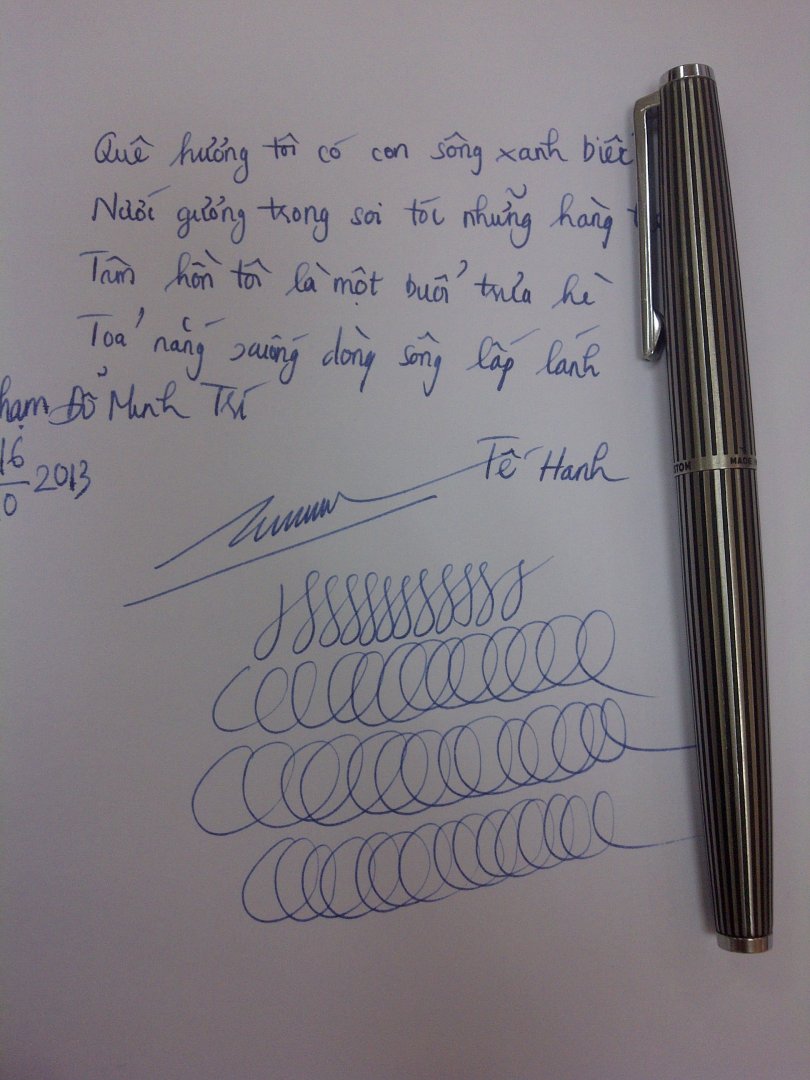 Quê hương tôi có con sông xanh biếc
Nước gương trong soi tóc những hàng
Tâm hồn tôi là một buổi trưa hè
Toả nắng xuống dòng sông lấp lánh
hạm Đỗ Minh Trí
16
0 2013
Tế Hanh
STOM MADE